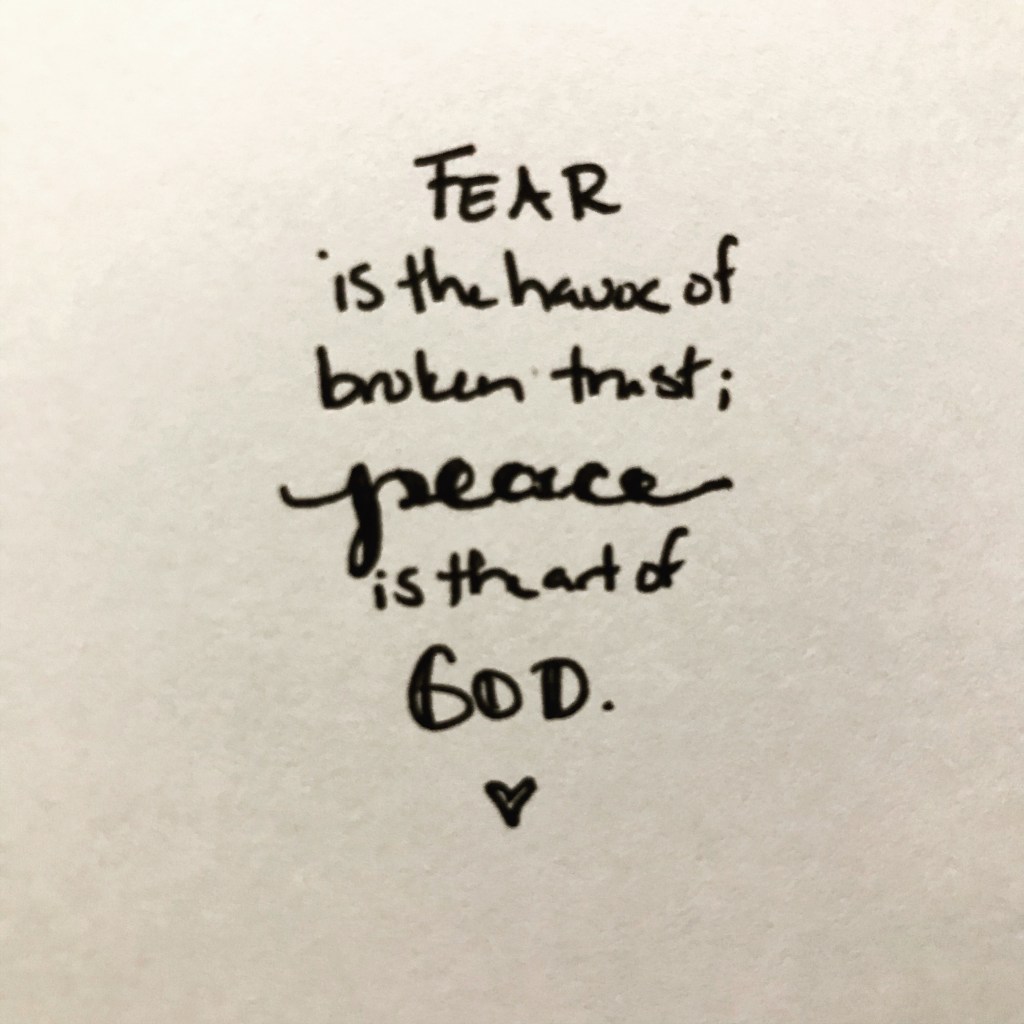 FEAR
is the havoc of
broken trust;
peace
is the art of
GOD.